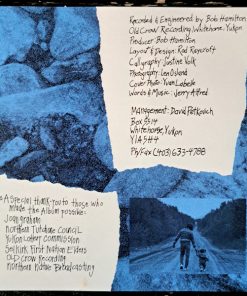 Recorded & Engineered by Bob Hamilton
Old Crow Recording, Whitehorse, Yukon
Producer Bob Hamilton
Layout & Design: Rod Raycroft
Calligraphy: Justine Volk
Photography: Len Osland
Cover Photo: Yvon Labelle
Words & Music: Jerry Alfred
Management: David Petkovich
Box 5514
Whitehorse, Yukon
Y1A 5H4
Ph/Fax (403) 633-4788
A special thank-you to those who
made the Album possible:
Joan Graham
Northern Tutchone Council
Yukon Lottery Commission
Selkirk First Nation Elders
Old Crow Recording
Northern Native Broadcasting